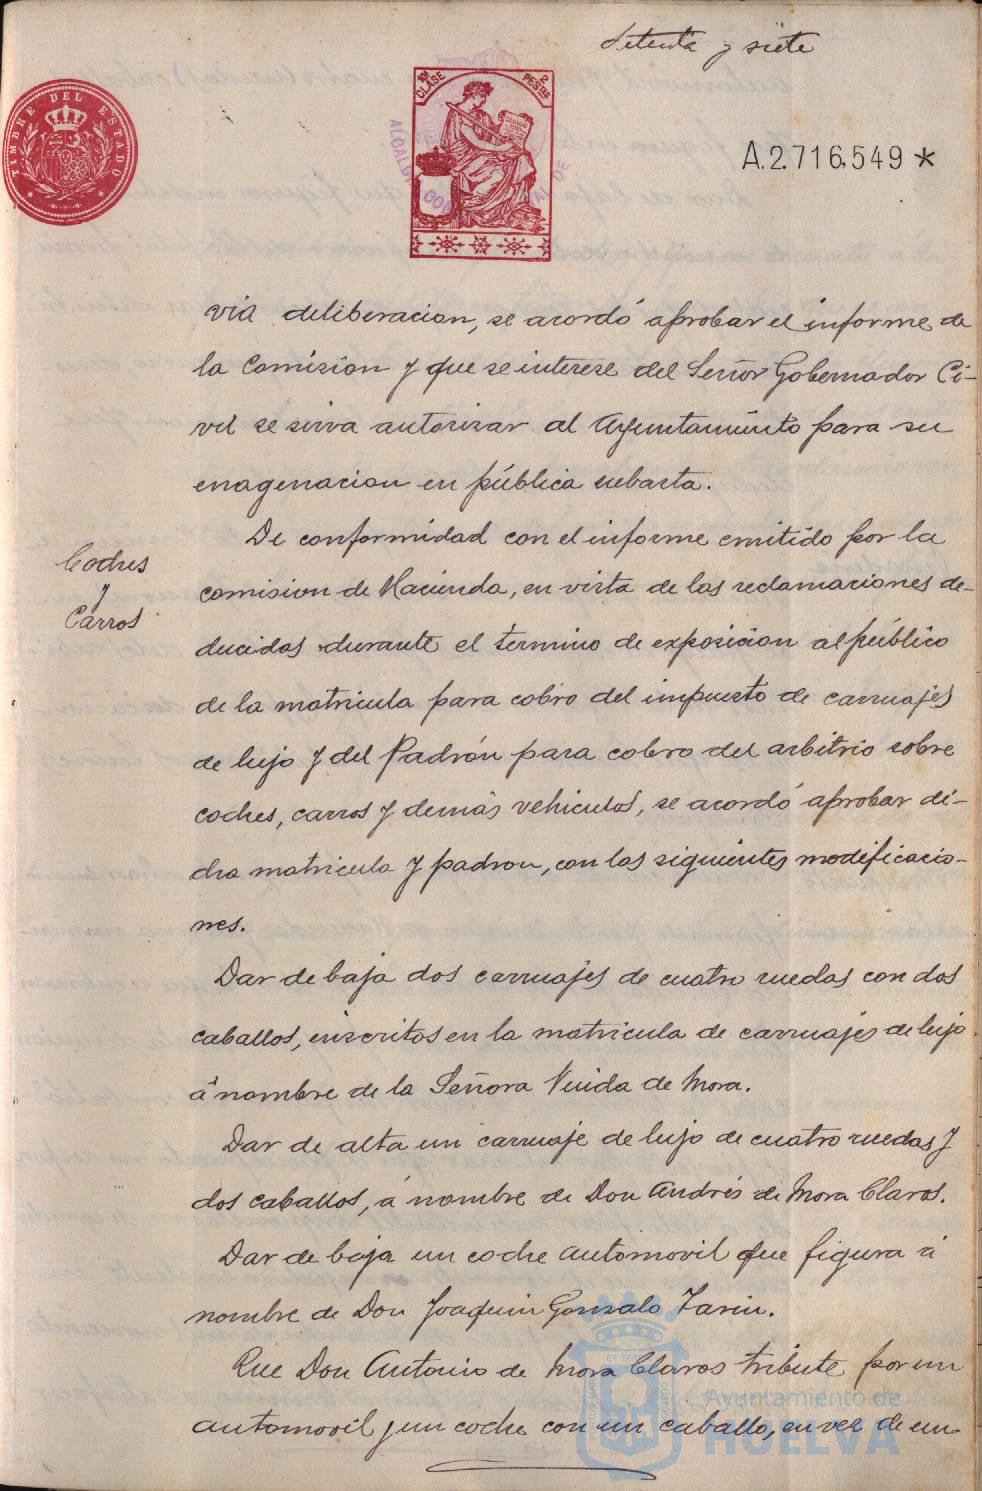 Setenta y siete
TIMBRE DEL ESTADO
10ª CLASE
2 PESTAS
A.2.716.549 *
via deliberacion, se acordó aprobar el informe de
la Comision y que se interese del Señor Gobernador Ci-
vil se sirva autorizar al Ayuntamiento para su
enagenacion en pública subasta.
Coches
y
Carros
De conformidad con el informe emitido por la
comision de Hacienda, en vista de las reclamaciones de-
ducidas durante el término de exposicion al público
de la matricula para cobro del impuesto de carruajes
de lujo y del Padrón para cobro del arbitrio sobre
coches, carros y demás vehiculos, se acordó aprobar di-
cha matricula y padron, con las siguientes modificacio-
nes.
Dar de baja dos carruajes de cuatro ruedas con dos
caballos, inscritos en la matricula de carruajes de lujo
á nombre de la Señora Viuda de Mora.
Dar de alta un carruaje de lujo de cuatro ruedas y
dos caballos, á nombre de Don Andrés de Mora Claros.
Dar de baja un coche automovil que figura á
nombre de Don Joaquin Gonzalo Tarin.
Que Don Antonio de Mora Claros tribute por un
automovil y un coche con un caballo, en vez de un
Ayuntamiento de
HUELVA